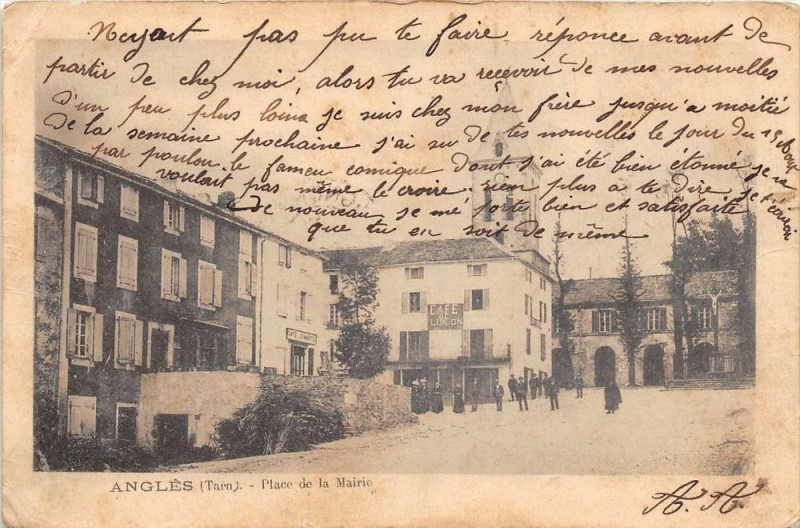 Neyant pas pu te faire réponce avant de
partir de chez moi, alors tu va reçevoir de mes nouvelles
D'un peu plus loins je suis chez mon frère jusqu'a moitié
de la semaine prochaine j'ai su de tes nouvelles le jour du 15 Aout
par poulou le fameu comique dont j'ai été bien étonné je ne
voulait pas même le croire rien plus à te dire je t'écrirai
de nouveau je mé porte bien et satisfaite
que tu en soit de même
CAFÉ
DE
L'UNION
ANGLÈS (Tarn). - Place de la Mairie
A. A.